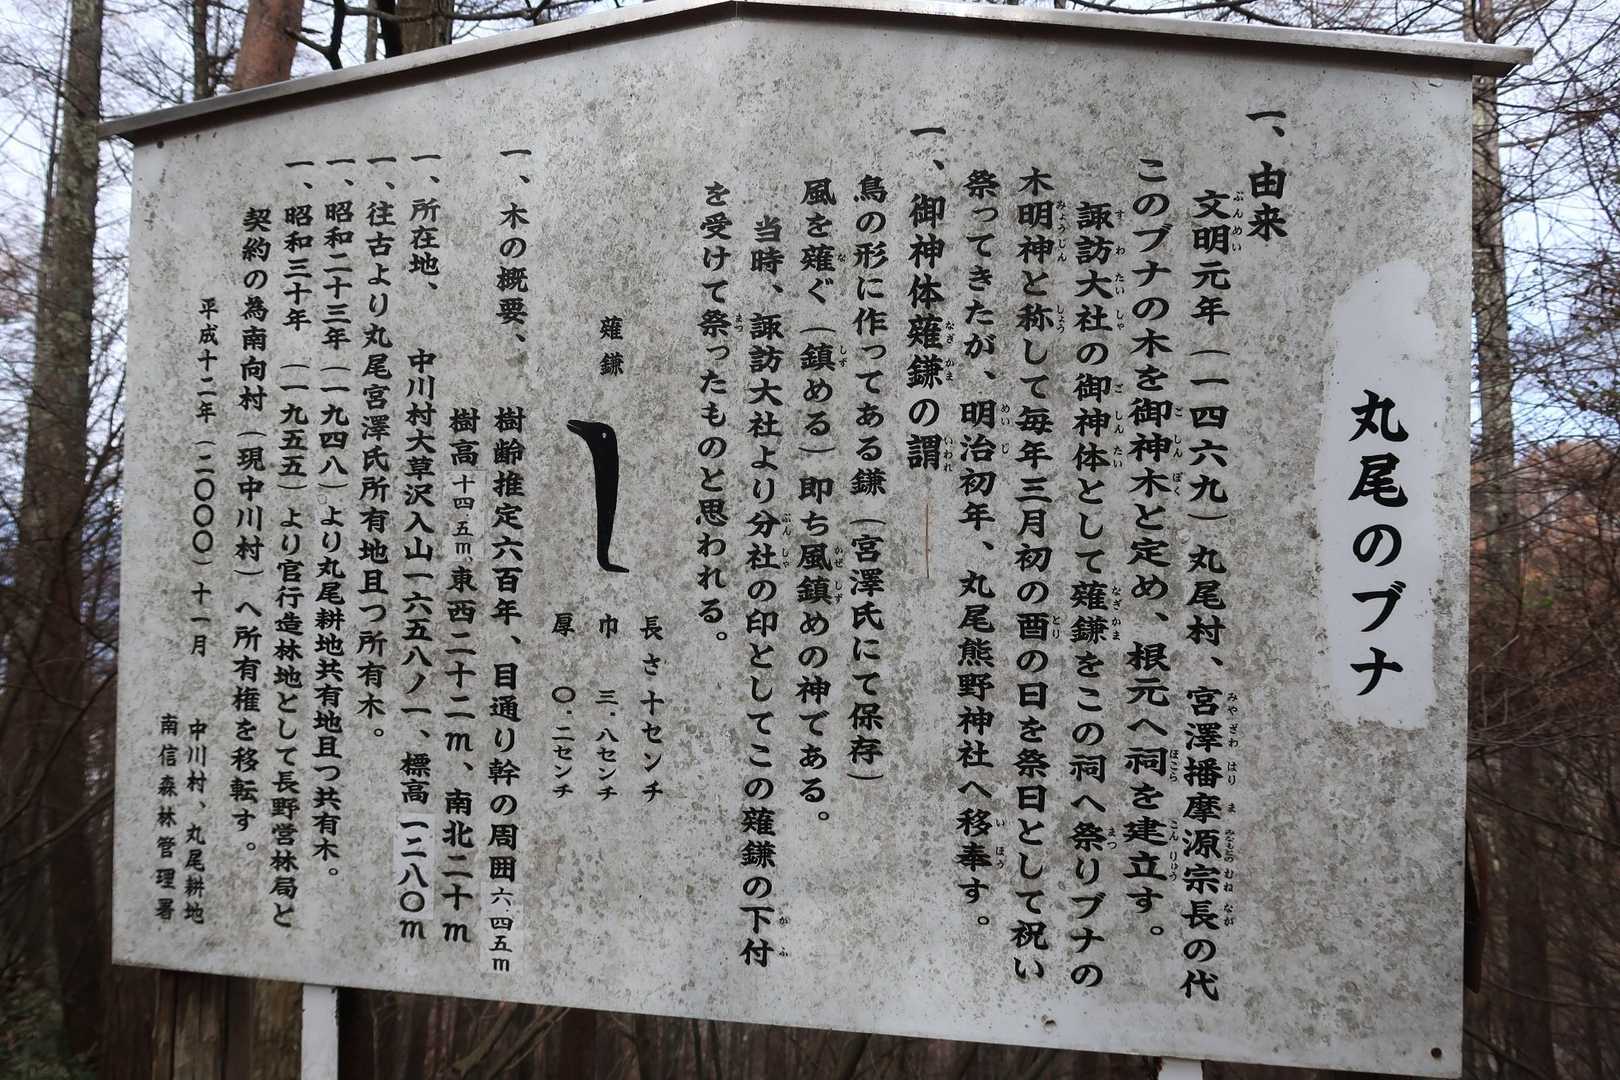 丸尾のブナ
一、由来
文明元年(一四六九)丸尾村、宮澤播摩源宗長の代
このブナの木を御神木と定め、根元へ祠を建立す。
諏訪大社の御神体として薙鎌をこの祠へ祭りブナの
木明神と称して毎年三月初の酉の日を祭日として祝い
祭ってきたが、明治初年、丸尾熊野神社へ移奉す。
一、御神体薙鎌の謂
鳥の形に作ってある鎌(宮澤氏にて保存)
風を薙ぐ(鎮める)即ち風鎮めの神である。
当時、諏訪大社より分社の印としてこの薙鎌の下付
を受けて祭ったものと思われる。
薙鎌
長さ十センチ
巾 三.八センチ
厚 〇.二センチ
一、木の概要、 樹齢推定六百年、目通り幹の周囲六.四五m
樹高十四.五m、東西二十二m、南北二十m
一、所在地、 中川村大草沢入山一六五八ノ一、標高一二八〇m
一、往古より丸尾宮澤氏所有地且つ所有木。
一、昭和二十三年(一九四八)より丸尾耕地共有地且つ共有木。
一、昭和三十年(一九五五)より官行造林地として長野営林局と
契約の為南向村(現中川村)へ所有権を移転す。
平成十二年(二〇〇〇)十一月
中川村、丸尾耕地
南信森林管理署